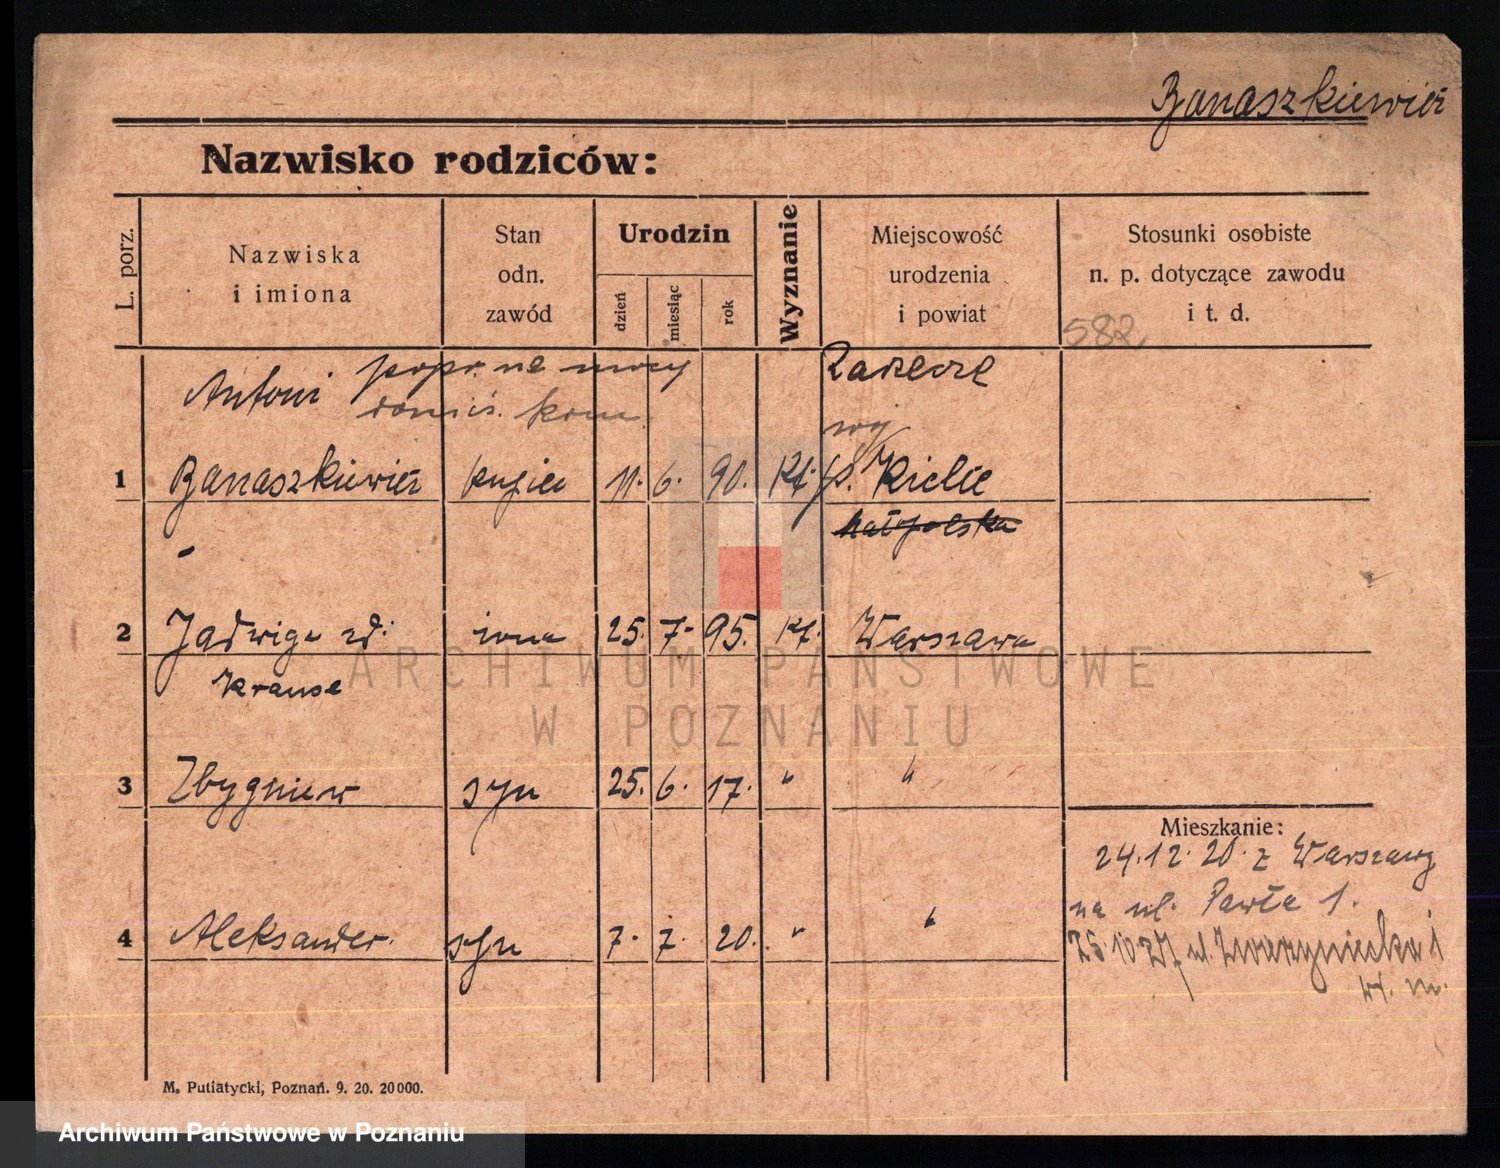 Banaszkiewicz
Nazwisko rodziców:
L. porz.
Nazwiska
i imiona
Stan
odn.
zawód
Urodzin
dzień
miesiąc
rok
Wyznanie
Miejscowość
urodzenia
i powiat
Stosunki osobiste
n. p. dotyczące zawodu
i t. d.
582
Antoni popr. na mocy Zarzecze
kom
1 Banaszkiewicz kupiec 11. 6. 90. kt. p. Kielce
Małopolska
2 Jadwiga zd. żona 25. 7. 95. kt. Warszawa
Krause
3 Zbygniew syn 25. 6. 17. " "
Mieszkanie:
24.12.20. z Warszawy
na ul. Pawła 1.
4 Aleksander. syn 7. 7. 20. " "
25.10 27 ul. Zwierzyniecka 1
M. Putiatycki, Poznań. 9. 20. 20000.
ARCHIWUM PAŃSTWOWE
W POZNANIU
Archiwum Państwowe w Poznaniu